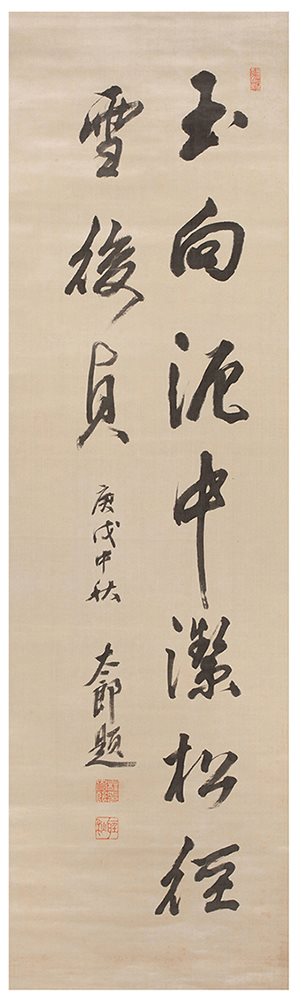 玉向泥中潔松經
雪後貞
庚戌中秋 太郎題